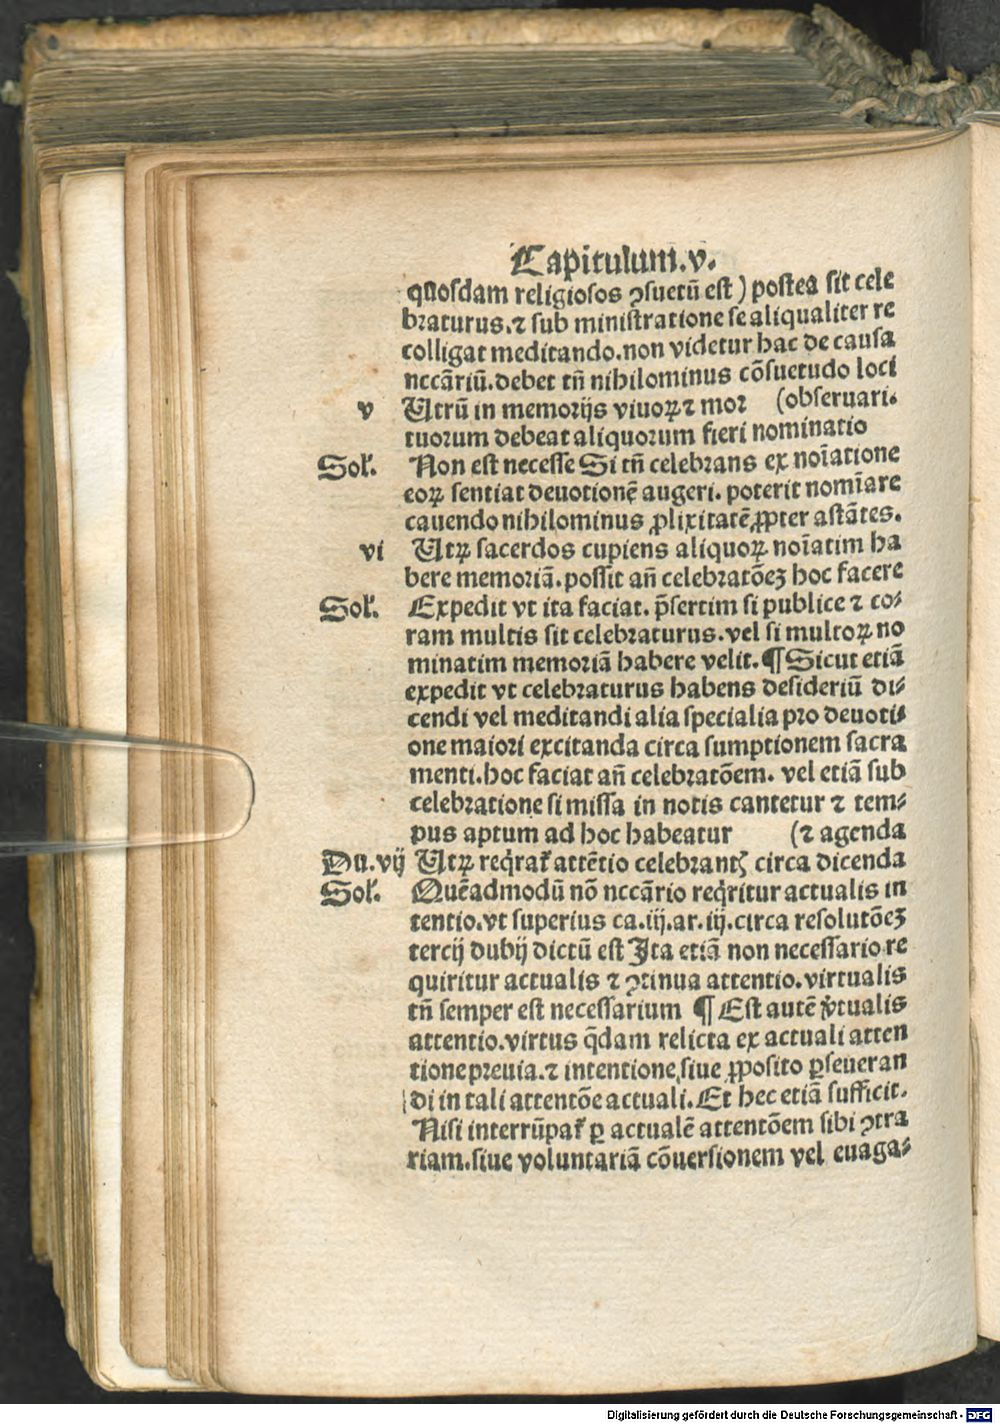 Capitulum.v.
quosdam religiosos ꝯsuetũ est) postea sit cele
braturus.⁊ sub ministratione se aliqualiter re
colligat meditando.non videtur hac de causa
nccãriũ.debet tñ nihilominus cõsuetudo loci
v Utrũ in memorijs viuoꝝ ⁊ mor (obseruari.
tuorum debeat aliquorum fieri nominatio
Sol'. Non est necesse Si tñ celebrans ex noĩatione
eoꝝ sentiat deuotionẽ augeri. poterit nomĩare
cauendo nihilominus ꝓlixitatẽ ꝓpter astãtes.
vi Utꝝ sacerdos cupiens aliquoꝝ noĩatim ha
bere memoriã. possit añ celebratõeꝫ hoc facere
Sol'. Expedit vt ita faciat. p̃sertim si publice ⁊ co⸗
ram multis sit celebraturus.vel si multoꝝ no
minatim memoriã habere velit. ¶ Sicut etiã
expedit vt celebraturus habens desideriũ di⸗
cendi vel meditandi alia specialia pro deuoti⸗
one maiori excitanda circa sumptionem sacra
menti.hoc faciat añ celebratõem. vel etiã sub
celebratione si missa in notis cantetur ⁊ tem⸗
pus aptum ad hoc habeatur (⁊ agenda
Du.vij Utꝝ reqͥrat' attẽtio celebrantꝭ circa dicenda
Sol'. Quẽadmodũ nõ nccãrio reqͥritur actualis in
tentio.vt superius ca.iij.ar.iij.circa resolutõeꝫ
tercij dubij dictũ est Ita etiã non necessario re
quiritur actualis ⁊ ꝯtinua attentio.virtualis
tñ semper est necessarium ¶ Est autẽ v̓tualis
attentio.virtus q̃dam relicta ex actuali atten
tione preuia.⁊ intentione siue ꝓposito ꝑseueran
di in tali attentõe actuali. Et hec etiã sufficit.
Nisi interrũpat' ꝑ actualẽ attentõem sibi ꝯtra
riam.siue voluntariã cõuersionem vel euaga⸗
Digitalisierung gefördert durch die Deutsche Forschungsgemeinschaft - DFG